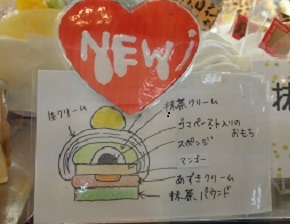 NEW!
生クリーム
抹茶クリーム
ゴマペースト入りの
おもち
スポンジ
マンゴー
あずきクリーム
抹茶パウンド
抹